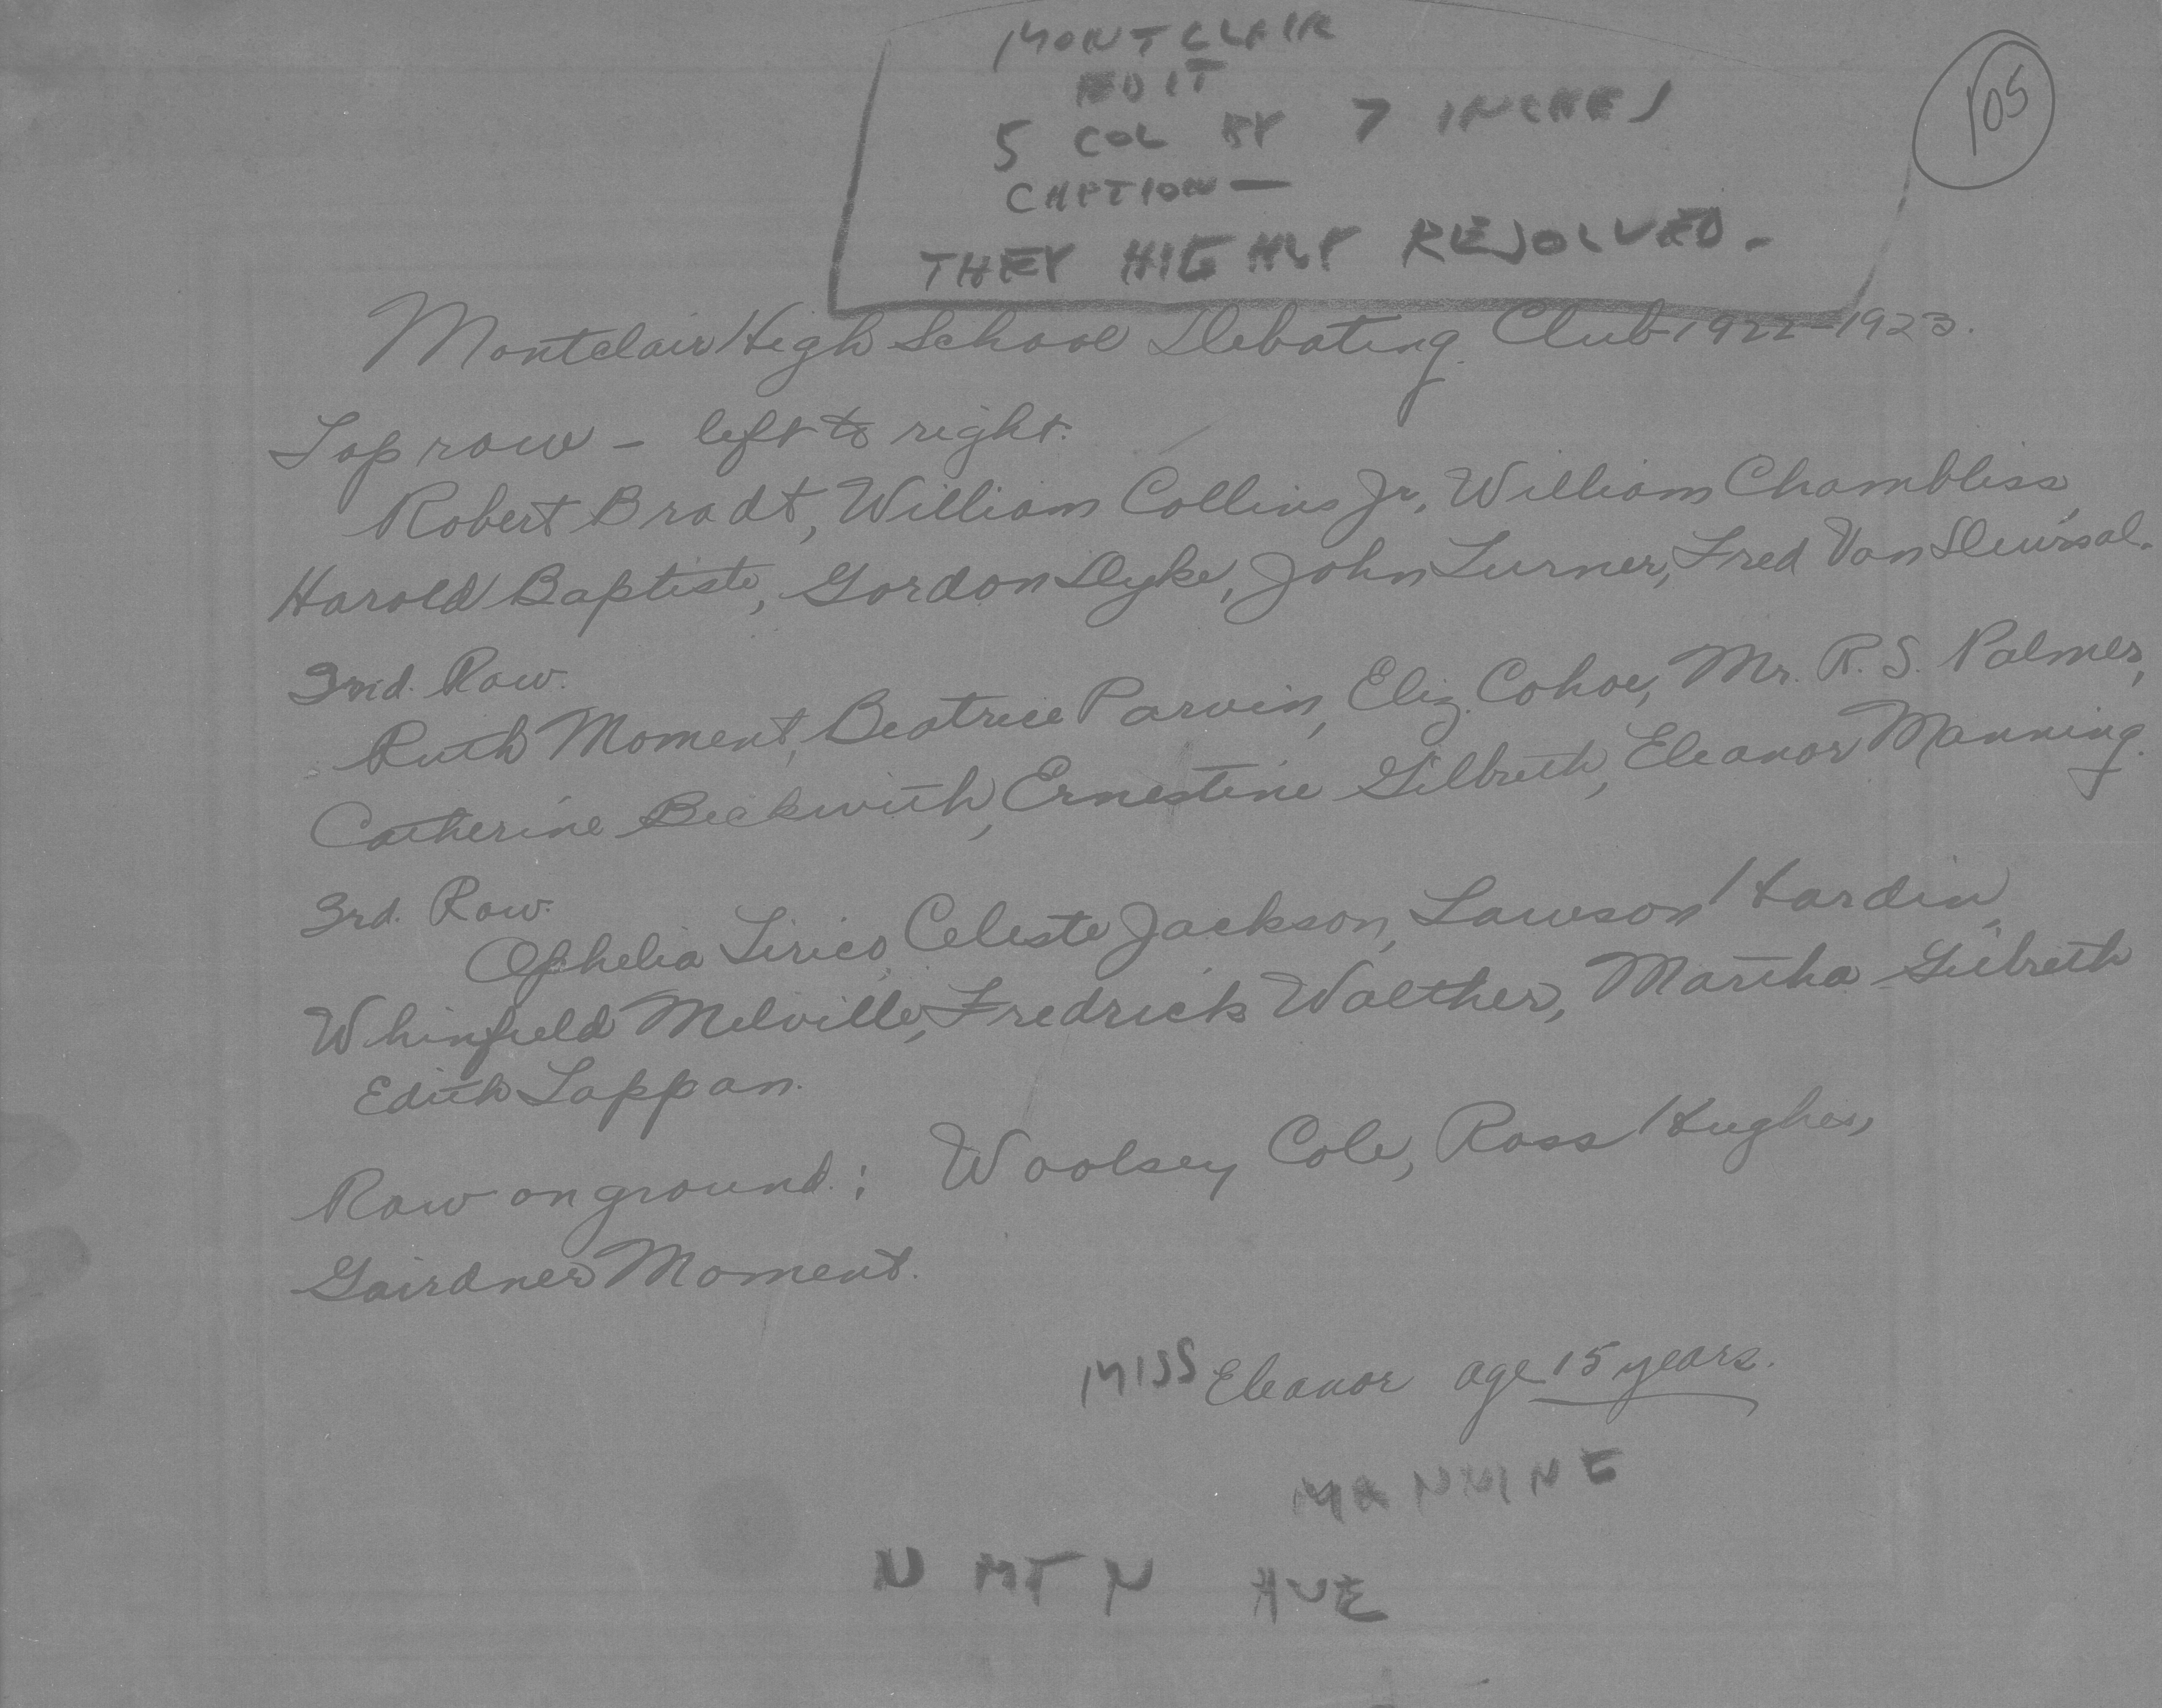 MONTCLAIR
EDIT
5 COL BY 7 INCHES
CAPTION —
THEY HIGHLY RESOLVED.
105
Montclair High School Debating Club 1922-1923.
Top row - left to right.
Robert Bradt, William Collins Jr., William Chambliss,
Harold Baptiste, Gordon Dyke, John Turner, Fred Van
2nd. Row.
Ruth Moment, Beatrice Parvin, Eliz. Cohoe, Mr. R. S. Palmer,
Catherine Beckwith, Ernestine Gilbreth, Eleanor Manning.
3rd. Row.
Ophelia Celeste Jackson, Lawson Hardin,
Whinfield Melville, Fredrick Walther, Martha Gilbreth
Edith Tappan.
Row on ground: Woolsey Cole, Ross Hughes,
Gairdner Moment.
MISS Eleanor age 15 years.
N MTN AVE